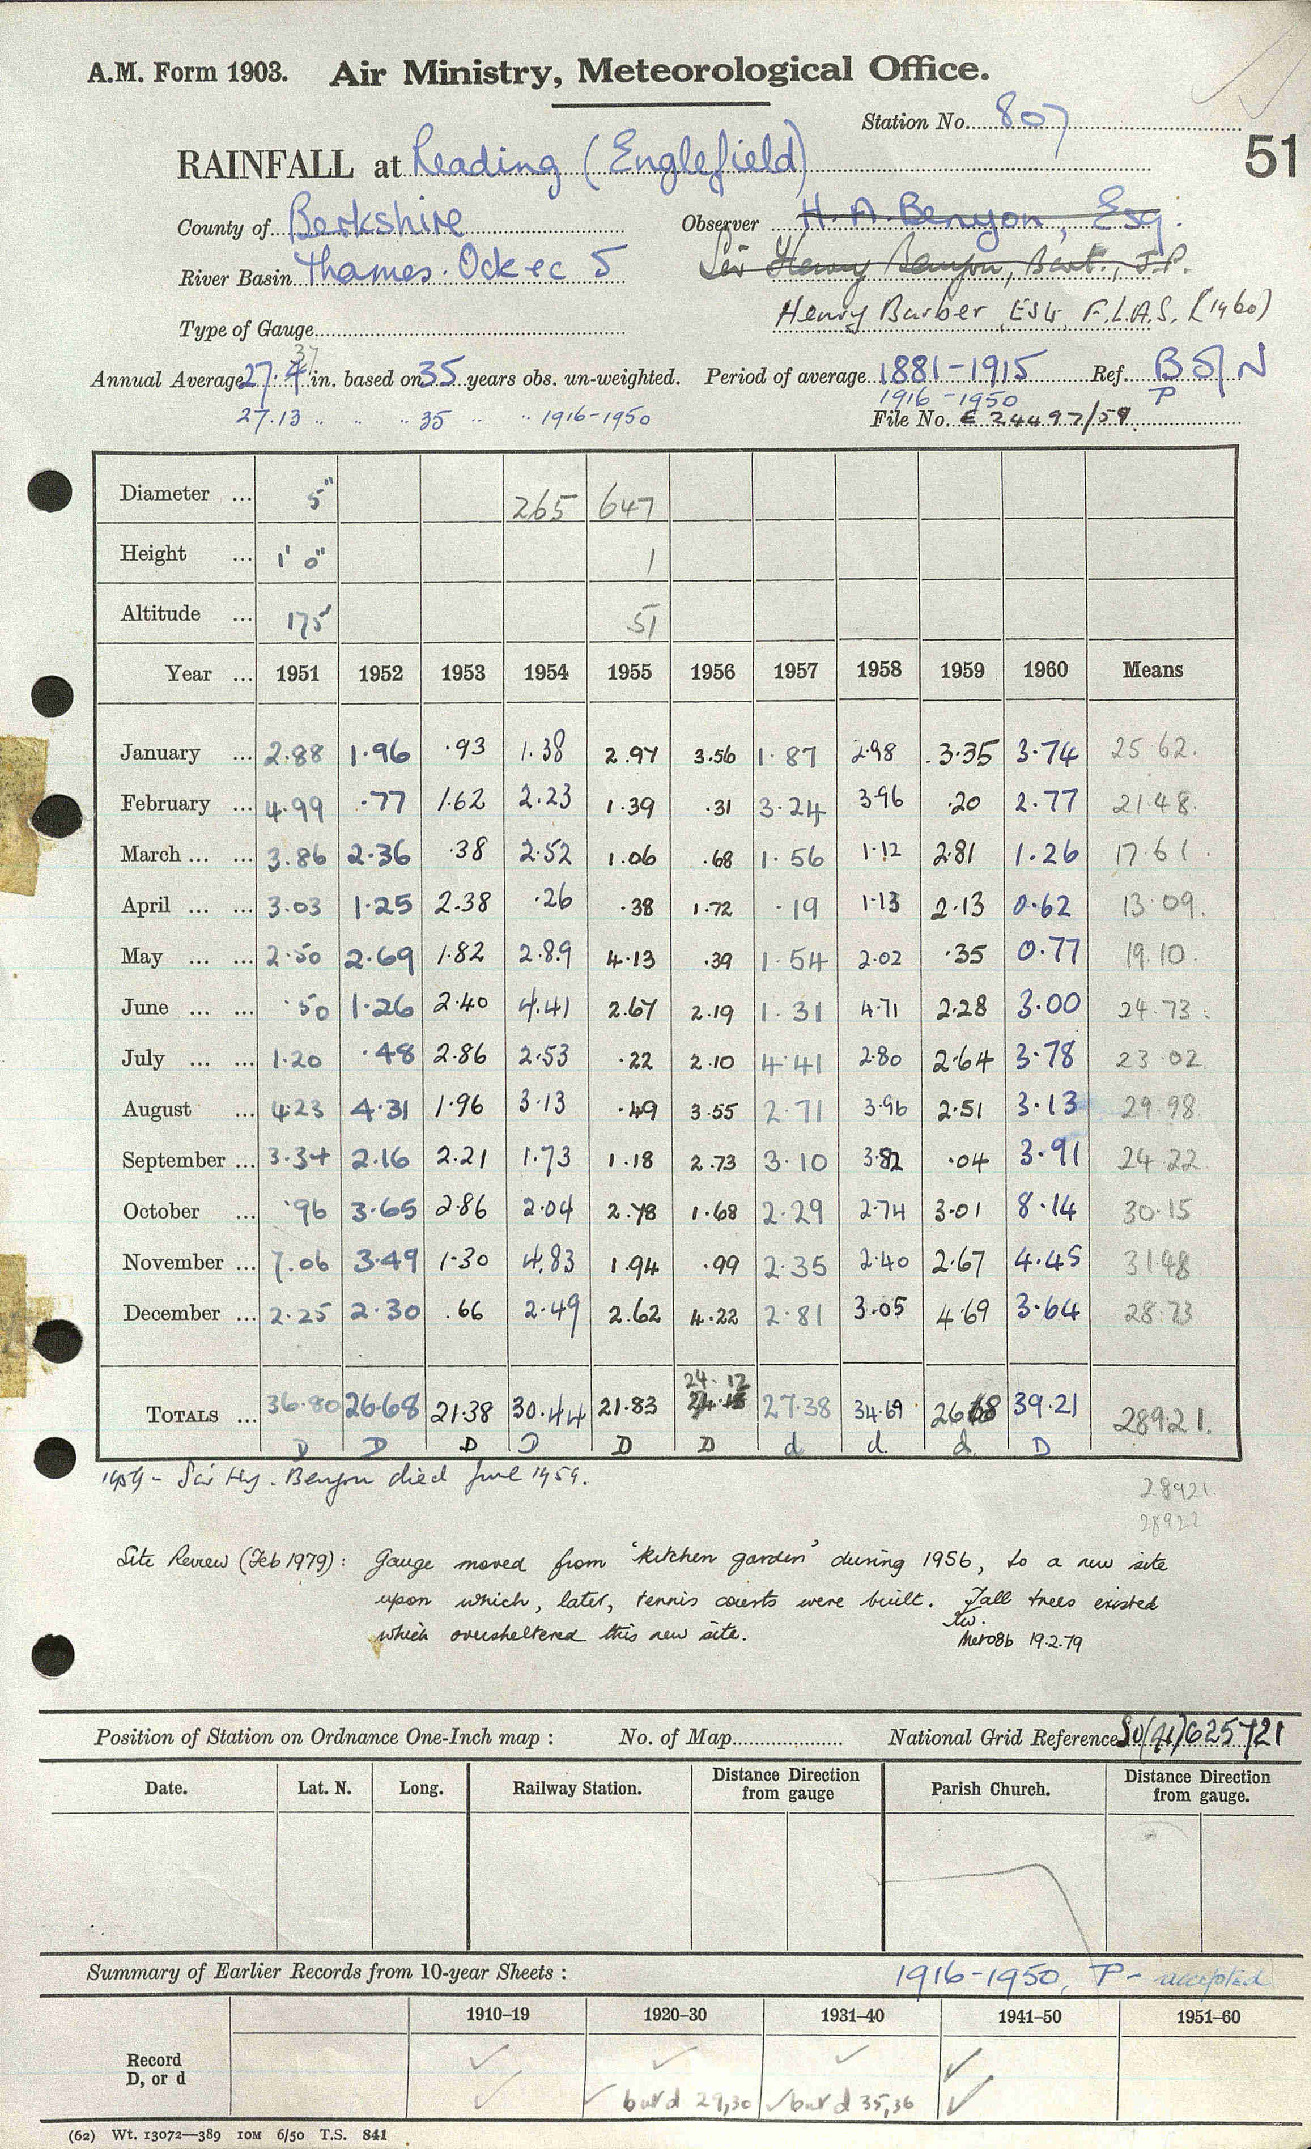 A.M. Form 1903. Air Ministry, Meteorological Office.
Station No. 807
51
RAINFALL at Reading (Englefield)
County of Berkshire Observer H. A. Benyon, Esq.
River Basin Thames. Ock ec 5 Sir Henry Benyon, Bart., J.P.
Type of Gauge Henry Barber, ESQ, F.L.A.S. (1960)
37
Annual Average 27.4 in. based on 35 years obs. un-weighted. Period of average 1881-1915 Ref. BS/N
1916-1950 P
27.13 " " 35 " " 1916-1950 File No. E 24497/59
Diameter ... 5" 265 647
Height ... 1' 0" 1
Altitude ... 175' 51
Year ... 1951 1952 1953 1954 1955 1956 1957 1958 1959 1960 Means
January ... 2.88 1.96 .93 1.38 2.97 3.56 1.87 2.98 3.35 3.74 25 62.
February ... 4.99 .77 1.62 2.23 1.39 .31 3.24 3.96 .20 2.77 21 48.
March ... ... 3.86 2.36 .38 2.52 1.06 .68 1.56 1.12 2.81 1.26 17.61.
April ... ... 3.03 1.25 2.38 .26 .38 1.72 .19 1.13 2.13 0.62 13.09.
May ... ... 2.50 2.69 1.82 2.89 4.13 .39 1.54 2.02 .35 0.77 19.10.
June ... ... .50 1.26 2.40 4.41 2.67 2.19 1.31 4.71 2.28 3.00 24.73.
July ... ... 1.20 .48 2.86 2.53 .22 2.10 4.41 2.80 2.64 3.78 23 02
August ... 4.23 4.31 1.96 3.13 .49 3.55 2.71 3.96 2.51 3.13 29.98
September ... 3.34 2.16 2.21 1.73 1.18 2.73 3.10 3.82 .04 3.91 24 22
October ... .96 3.65 2.86 2.04 2.78 1.68 2.29 2.74 3.01 8.14 30.15
November ... 7.06 3.49 1.30 4.83 1.94 .99 2.35 2.40 2.67 4.45 31 48
December ... 2.25 2.30 .66 2.49 2.62 4.22 2.81 3.05 4.69 3.64 28.73
24.12
TOTALS ... 36.80 26.68 21.38 30.44 21.83 27.38 34.69 26.68 39.21 28921.
D D D D D D d d d D
1959 - Sir Hy. Benyon died June 1959.
28921
28922
Site Review (Feb 1979): Gauge moved from 'kitchen garden' during 1956, to a new site
upon which, later, tennis courts were built. Tall trees existed
which oversheltered this new site.
Met08b 19.2.79
Position of Station on Ordnance One-Inch map : No. of Map National Grid Reference SU(41)625721
Date. Lat. N. Long. Railway Station. Distance from gauge Direction Parish Church. Distance from gauge. Direction
Summary of Earlier Records from 10-year Sheets : 1916-1950, P - accepted
1910-19 1920-30 1931-40 1941-50 1951-60
Record ✓ ✓ ✓ ✓
D, or d ✓ ✓ but d 29,30 ✓ but d 35,36 ✓
(62) Wt. 13072—389 10M 6/50 T.S. 841